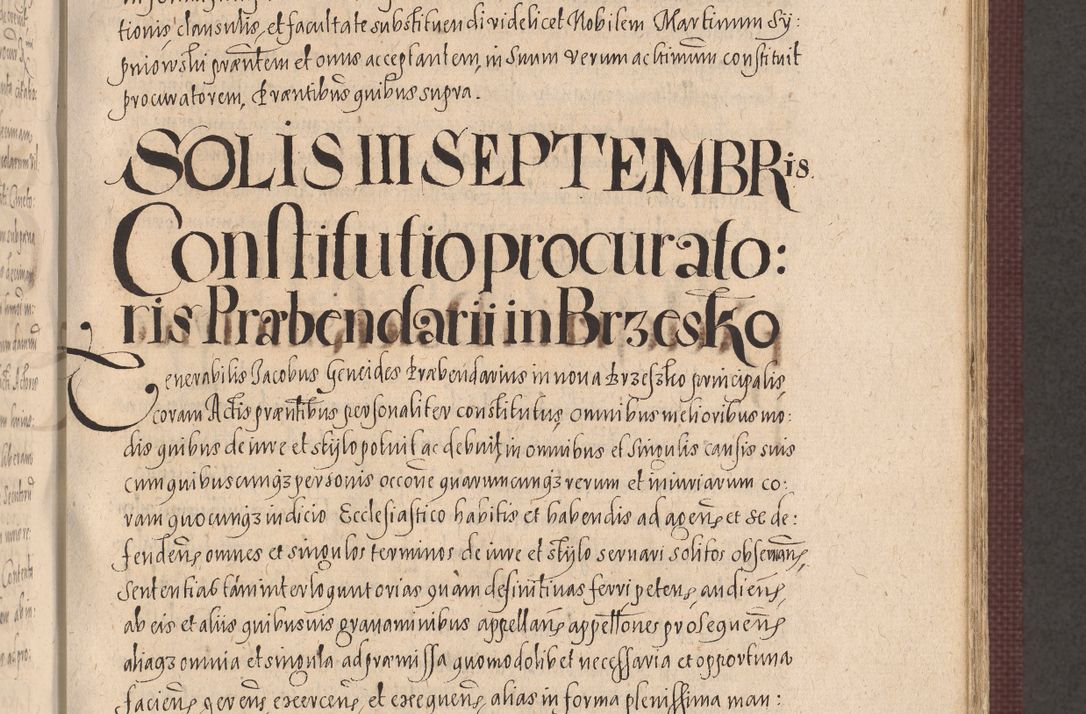 tionis clausulis, et facultate substituendi videlicet Nobilem Martinum Sy:
pniowski præntem et onus acceptantem, in suum verum ac ltimum constituit
procuratorem, Præntibus quibus supra.
SOLIS III SEPTEMBRis.
Constitutio procurato:
ris Præbendarii in Brzesko
Venerabilis Jacobus Geneides Præbendarius in nova Brzeszko principalis
coram Actis præntibus personaliter constitutus omnibus melioribus mo:
dis quibus de iure et stylo potuit ac debuit, in omnibus et singulis causis suis
cum quibuscunq3 personis occone quarumcunq3 rerum et iniuriarum co:
ram quocunq3 iudicio Ecclesiastico habitis et habendis ad agens et se de:
fendens omnes et singulos terminos de iure et stylo servari solitos observans,
sententias tam interloquutorias quàm definitivas ferri petens, audiens,
ab eis et aliis quibusvis gravaminibus appellans appellones prosequens
aliaq3 omnia et singula ad præmissa quomodolibet necessaria et opportuna
faciens gerens exercens, et exequens, alias in forma plenissima man: